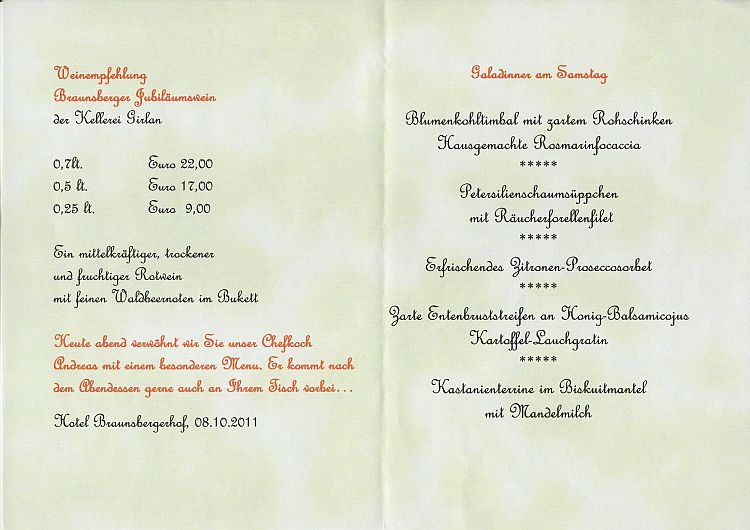 Weinempfehlung
Braunsberger Jubiläumswein
der Kellerei Girlan
0,7lt. Euro 22,00
0,5 lt. Euro 17,00
0,25 lt. Euro 9,00
Ein mittelkräftiger, trockener
und fruchtiger Rotwein
mit feinen Waldbeernoten im Bukett
Heute abend verwöhnt wir Sie unser Chefkoch
Andreas mit einem besonderen Menu. Er kommt nach
dem Abendessen gerne auch an Ihrem Tisch vorbei…
Hotel Braunsbergerhof, 08.10.2011
Galadinner am Samstag
Blumenkohltimbal mit zartem Rohschinken
Hausgemachte Rosmarinfocaccia
*****
Petersilienschaumsüppchen
mit Räucherforellenfilet
*****
Erfrischendes Zitronen-Proseccosorbet
*****
Zarte Entenbruststreifen an Honig-Balsamicojus
Kartoffel-Lauchgratin
*****
Kastanienterrine im Biskuitmantel
mit Mandelmilch